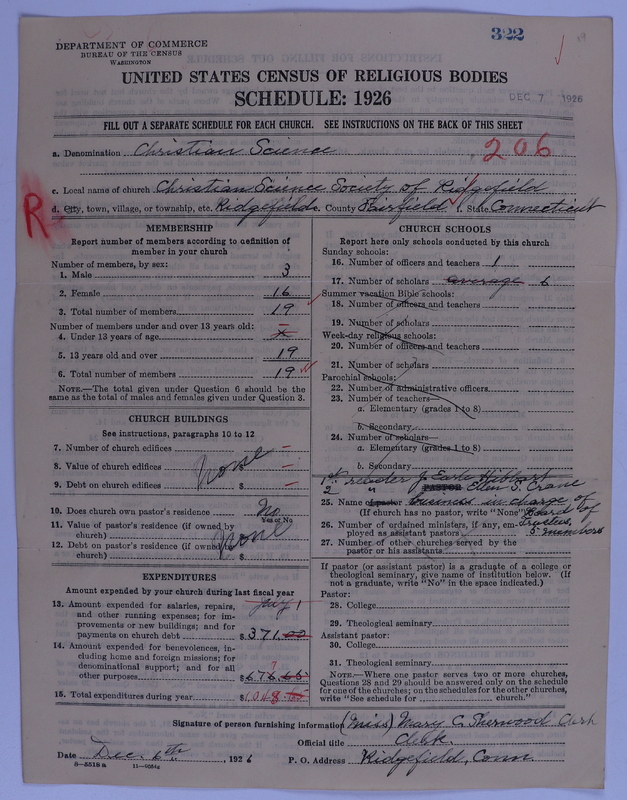 322
DEPARTMENT OF COMMERCE
BUREAU OF THE CENSUS
WASHINGTON
UNITED STATES CENSUS OF RELIGIOUS BODIES
SCHEDULE: 1926
DEC 7 1926
FILL OUT A SEPARATE SCHEDULE FOR EACH CHURCH. SEE INSTRUCTIONS ON THE BACK OF THIS SHEET
a. Denomination Christian Science 206
c. Local name of church Christian Science Society of Ridgefield
R
d. City, town, village, or township, etc. Ridgefield County Fairfield f. State Connecticut
MEMBERSHIP
Report number of members according to definition of
member in your church
Number of members, by sex:
1. Male 3
2. Female 16
3. Total number of members 19
Number of members under and over 13 years old:
4. Under 13 years of age
5. 13 years old and over 19
6. Total number of members 19
NOTE.—The total given under Question 6 should be
same as the total of males and females given under Question 3.
CHURCH BUILDINGS
See instructions, paragraphs 10 to 12
7. Number of church edifices
8. Value of church edifices None
9. Debt on church edifices $
10. Does church own pastor's residence No
Yes or No
11. Value of pastor's residence (if owned by
church) None
12. Debt on pastor's residence (if owned by
church) $
EXPENDITURES
Amount expended by your church during last fiscal year
13. Amount expended for salaries, repairs,
and other running expenses; for im-
provements or new buildings; and for
payments on church debt $371.00
14. Amount expended for benevolences, in-
cluding home and foreign missions; for
denominational support; and for all
other purposes $676.
15. Total expenditures during year $1048
CHURCH SCHOOLS
Report here only schools conducted by this church
Sunday schools:
16. Number of officers and teachers 1
17. Number of scholars average 6
Summer vacation Bible schools:
18. Number of officers and teachers
19. Number of scholars
Week-day religious schools:
20. Number of officers and teachers
21. Number of scholars
Parochial schools:
22. Number of administrative officers
23. Number of teachers—
a. Elementary (grades 1 to 8)
b. Secondary
24. Number of scholars—
a. Elementary (grades 1 to 8)
b. Secondary
1st reader J. Earle
PASTOR
2 " Ellen J. Crane
25. Name of pastor business in charge of
(If church has no pastor, write "None") Board of
26. Number of ordained ministers, if any, em-
ployed as assistant pastors
trustees,
5 members
27. Number of other churches served by the
pastor or his assistants
If pastor (or assistant pastor) is a graduate of a college or
theological seminary, give name of institution below. (If
not a graduate, write "No" in the space indicated.)
Pastor:
28. College
29. Theological seminary
Assistant pastor:
30. College
31. Theological seminary
NOTE.—Where one pastor serves two or more churches,
Questions 28 and 29 should be answered only on the schedule
for one of the churches; on the schedules for the other churches,
write "See schedule for church."
Signature of person furnishing information (Miss) Mary C. Sherwood Clerk
Official title Clerk.
Date Dec. 6th, 1926 P. O. Address Ridgefield, Conn.
8—5518 a 11—9684g